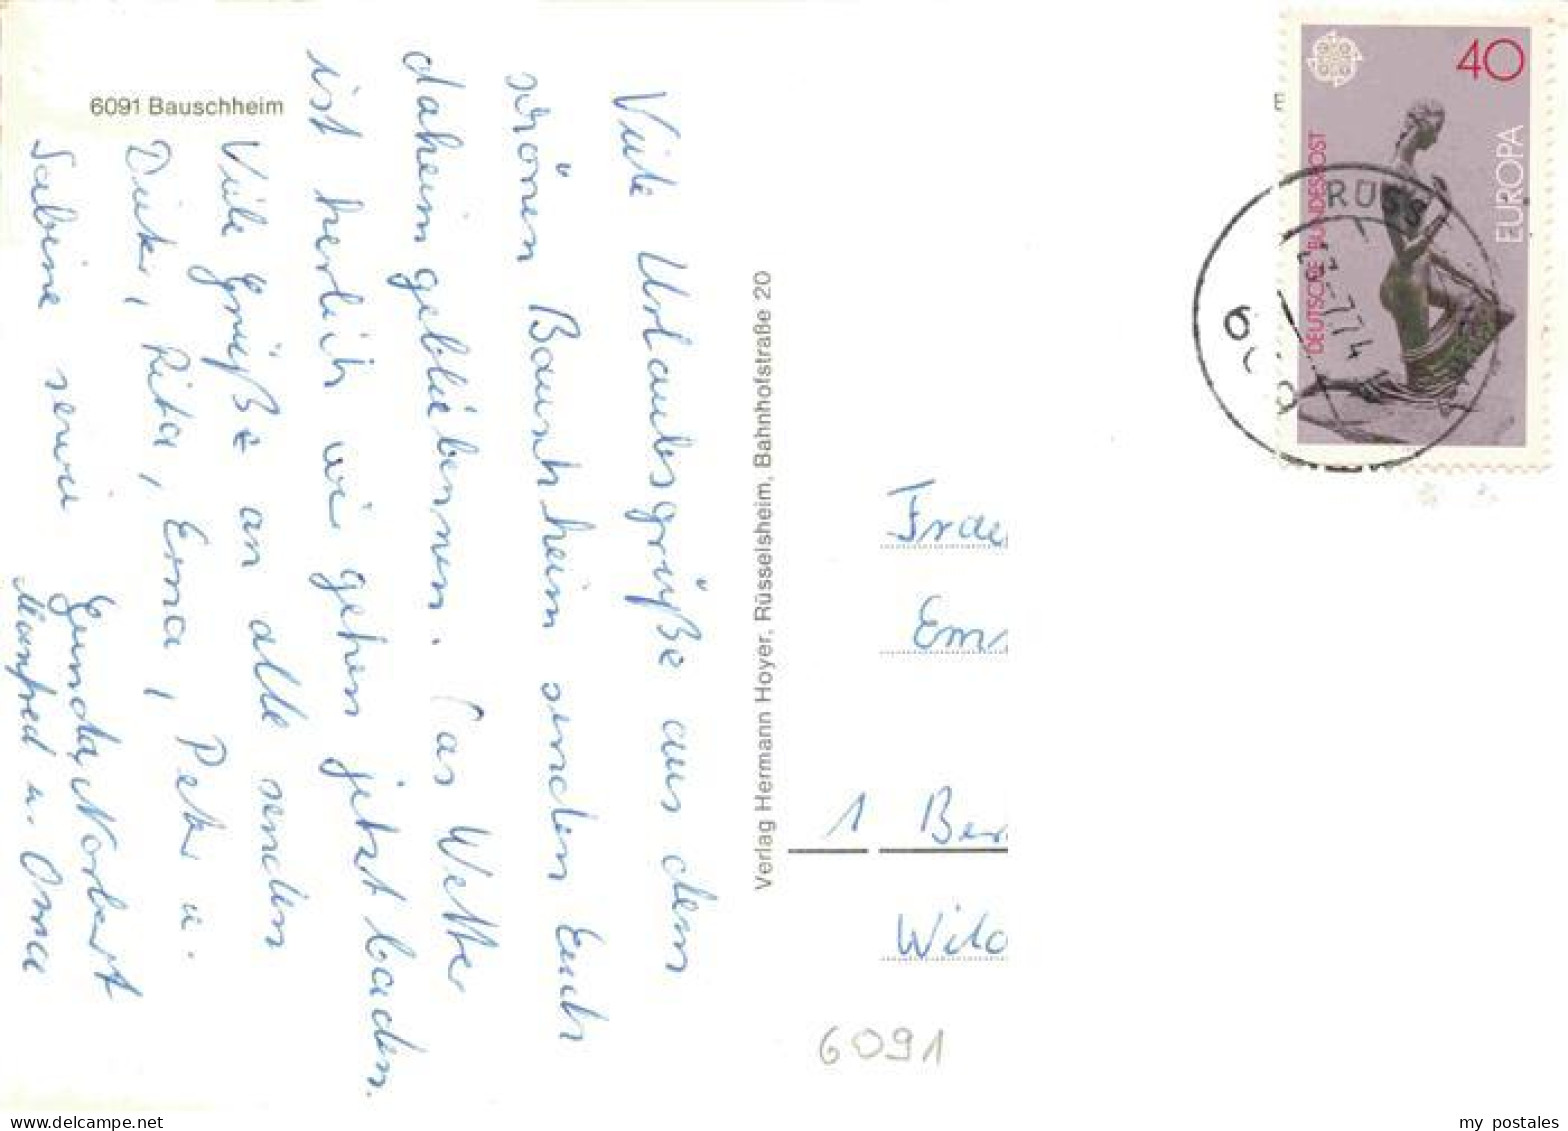 6091 Bauschheim
Viele Urlaubsgrüße aus dem
schönen Bauschheim senden Euch
daheimgebliebenen. Das Wetter
ist herlich wir gehen jetzt baden.
Viele Grüße an alle senden
Dieter, Rita, Erna, Peter u.
Sabine sowie Gunda, Norbert
Manfred u. Oma
Verlag Hermann Hoyer, Rüsselsheim, Bahnhofstraße 20
40
EUROPA
DEUTSCHE BUNDESPOST
RÜSS
-7.74
1 Ber
6091
my postales